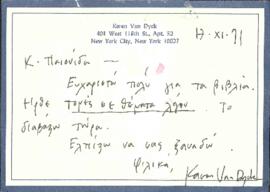 Karen Van Dyck
404 West 116th St., Apt. 52
New York City, New York 10027
17-XI-91
Κ. Παιονίδη —
Ευχαριστώ πολύ για τα βιβλία.
Ηρθε σε θέματα λόγου. Το
διαβάζω τώρα.
Ελπίζω να σας ξαναδώ.
Φιλικά,
Karen Van Dyck